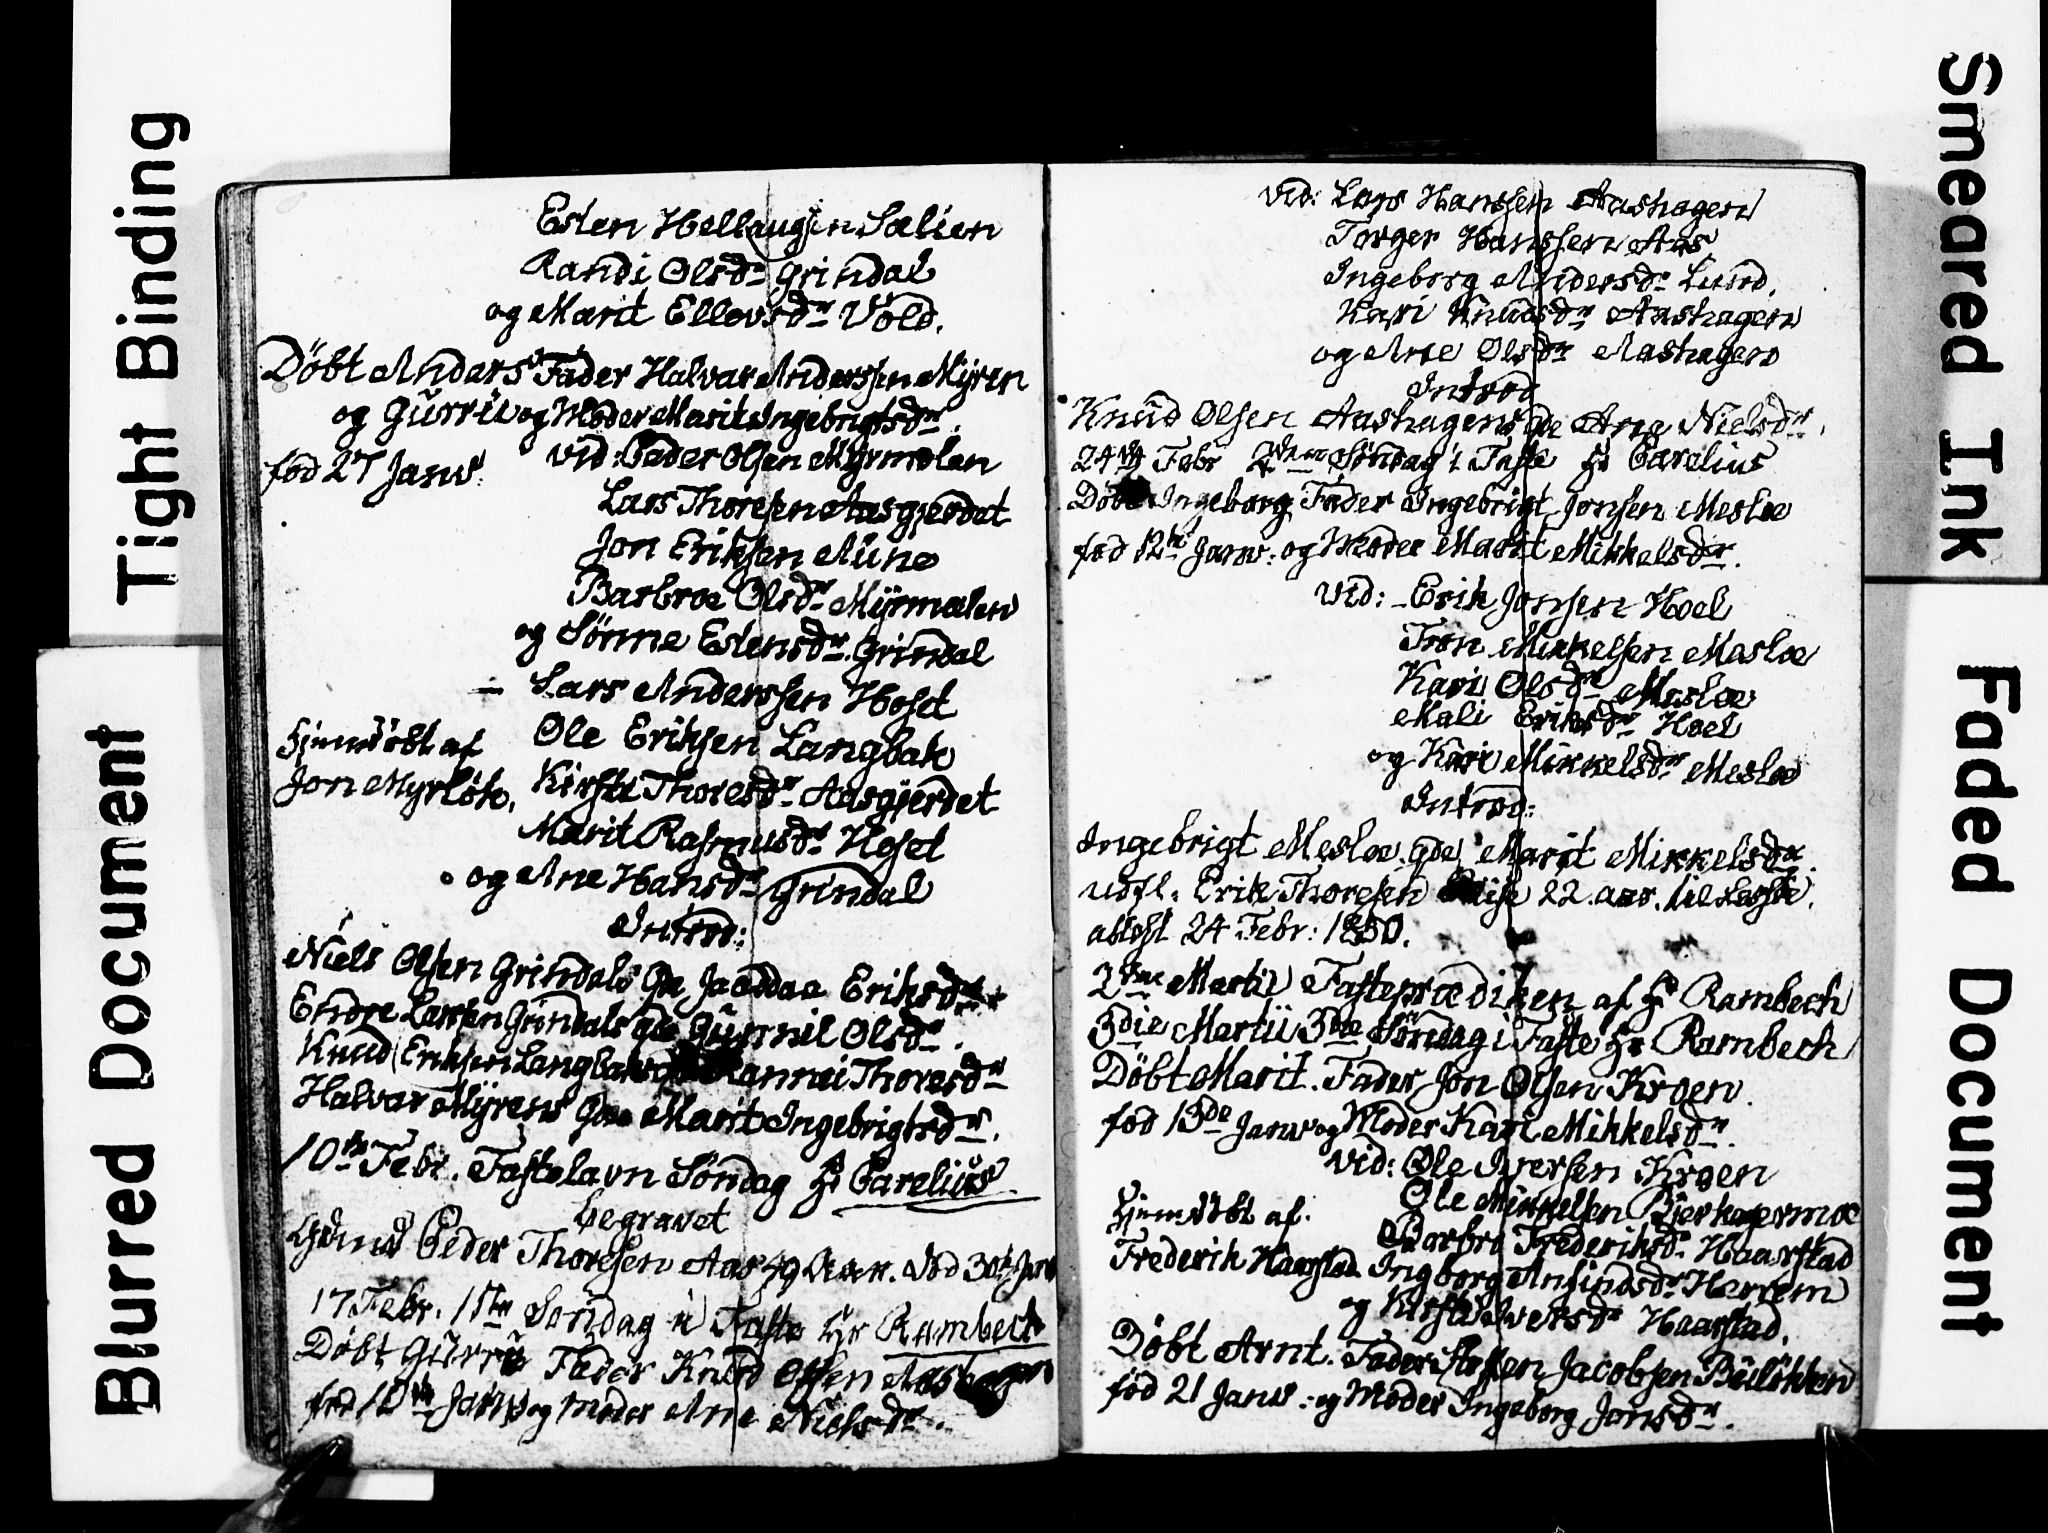 Tight Binding
Blurred Document
Smeared Ink
Faded Document
Esten Hellaugsen Sælien
Randi Olsdr Grindal
og Marit Ellevsdr Vold.
Döbt Anders Fader Halvar Anderssen Myren
og Gurru og Moder Marit Ingebrigtsdr.
föd 27 Janv: vid: Peder Olsen Myrmolen
Lars Thoresen Aasgjerdet
Jon Eriksen Aune
Barbroe Olsdr Myrmælen
og Sönne Estensdr Grindal
– Lars Anderssen Hoset
Ole Eriksen Langbak
hjemdöbt af
Jon Myrlök. Kirste Thoresdr Aasgjerdet
Marit Rasmusdr Hoset
og Ane Hansdr Grindal
Introd:
Niels Olsen Grindals Qde Eriksdr
Endre Larsen Grindals Qde Gunnil Olsdr.
Knud Eriksen Langbaks Thoresdr
Halvar Myrens Qde Marit Ingebrigtsdr.
10de Febr. Fastelavn Söndag Hr Parelius
begravet
Peder Thoresen Aas 79 Aar. död 30te Janv
17 Febr. 1ste Söndag i Faste Hr Rambech
Döbt Gurru Fader Knud Olsen Aashagen
föd 10de Janv og Moder Ane Nielsdr.
vid: Lars Hanssen Aashagen
Torger Hanssen Aas
Ingeborg Andersdr Lund.
Kari Knudsdr Aashagen
og Ane Olsdr Aashagen
Introd
Knud Olsen Aashagens Qde Ane Nielsdr.
24de Febr 2den Söndag i Faste Hr Parelius
Döbt Ingeborg Fader Ingebrigt Jonsen Mesloe
föd 12te Janv: og Moder Marit Mikkelsdr.
vid: Erik Jonsen Hoel
Tron Mikkelsen Mesloe
Kari Olsdr Mesloe
Mali Eriksdr Hoel
og Kari Mikkelsdr Mesloe
Introd:
Ingebrigt Mesloe Qde Marit Mikkelsdr.
udfl: Erik Thoresen 22 aar. til
attest 24 Febr: 1850.
2den Martii Fasteprædiken af Hr Rambech
3die Martii 3die Söndag i Faste Hr Rambech
Döbt Marit. Fader Jon Olsen Kroen.
föd 13de Janv og Moder Kari Mikkelsdr.
vid: Ole Iversen Kroen
Ole Mikkelsen Bjerkagermoe
hjemdöbt af.
Frederik Haarstad. Barbro Frederiksdr Haarstad
Ingborg Anfindsdr Harrem
og Kirste Iversdr Haarstad.
Döbt Arnt. Fader Steffen Jacobsen
föd 21 Janv: og Moder Ingeborg Jonsdr.